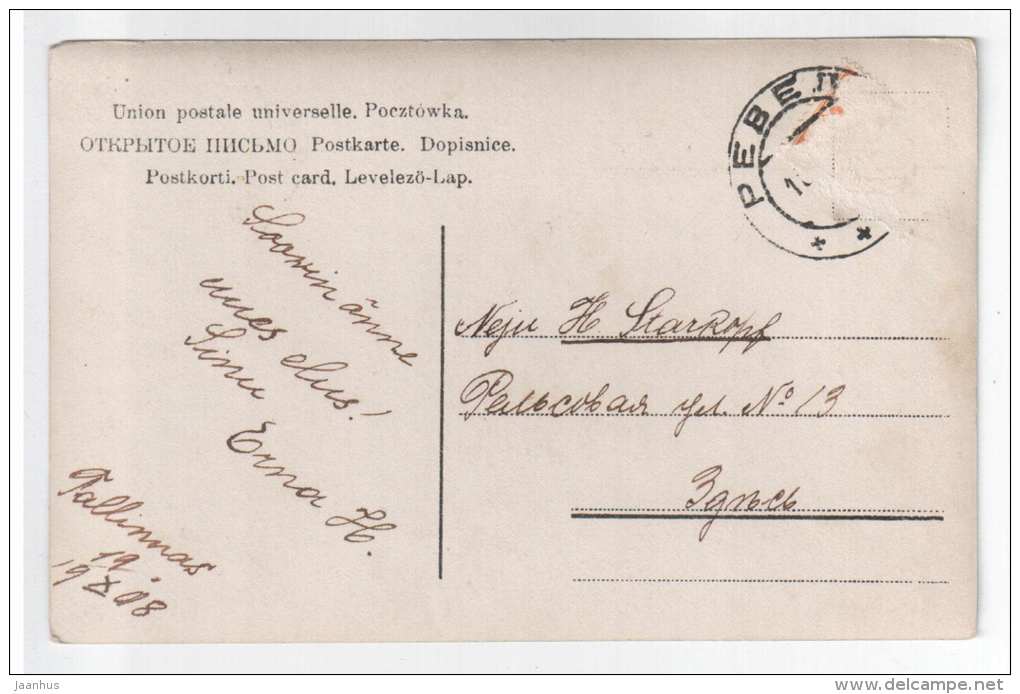 Union postale universelle. Pocztówka.
ОТКРЫТОЕ ПИСЬМО Postkarte. Dopisnice.
Postkorti. Post card. Levelező-Lap.
РЕВЕЛ
Soovin õnne
uues elus!
Sinu
Erna H.
Tallinnas
19.
19 X 08
Neiu H Starkopf
Рельсовая ул. № 13
Здѣсь
jaanhus
delcampe.net